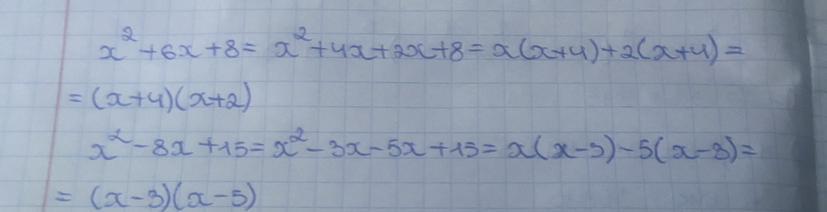 x²+6x+8= x²+4x+2x+8=x(x+4)+2(x+4)=
=(x+4)(x+2)
x²-8x+15=x²-3x-5x+15=x(x-3)-5(x-3)=
= (x-3)(x-5)